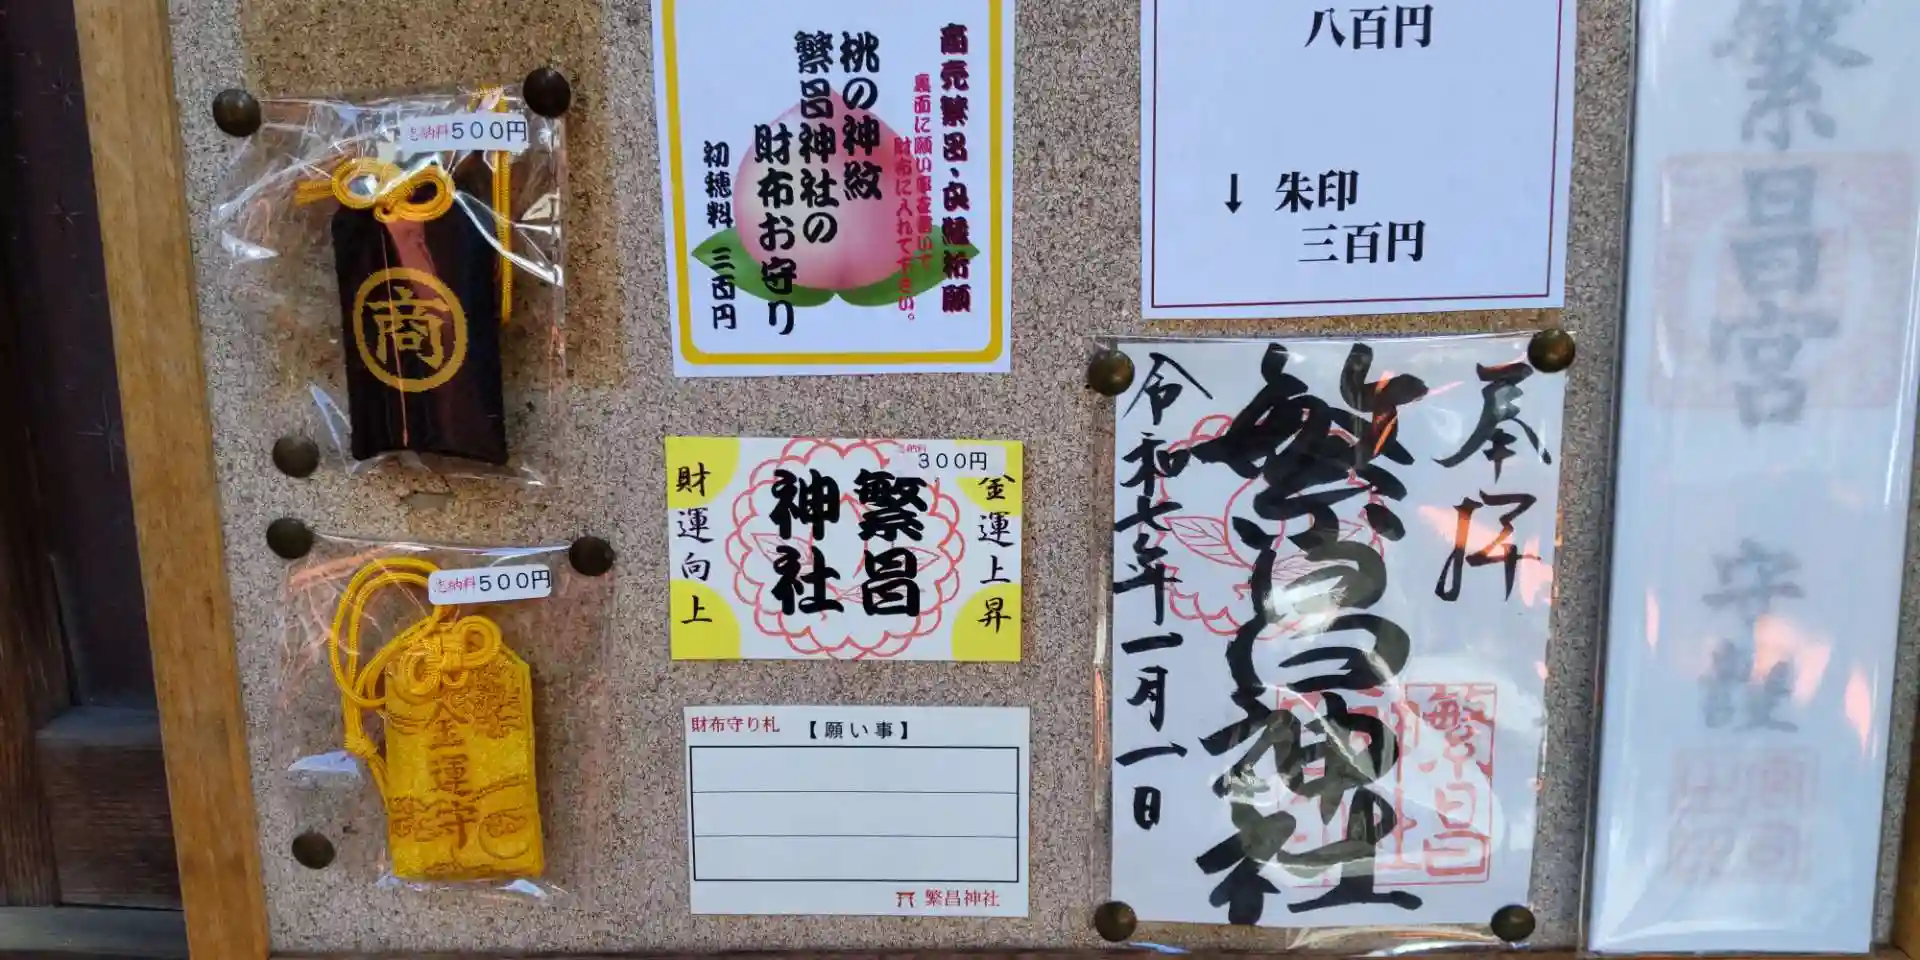 志納料500円
商
志納料500円
金運守
商売繁昌、良縁祈願
裏面に願い事を書いて
財布に入れて下さい。
桃の神紋
繁昌神社の
財布お守り
初穂料 三百円
志納料
300円
金運上昇
繁昌
神社
財運向上
財布守り札
【願い事】
繁昌神社
八百円
↓ 朱印
三百円
奉拝
繁昌神社
令和七年一月一日
繁昌
神社
繁昌宮 守護